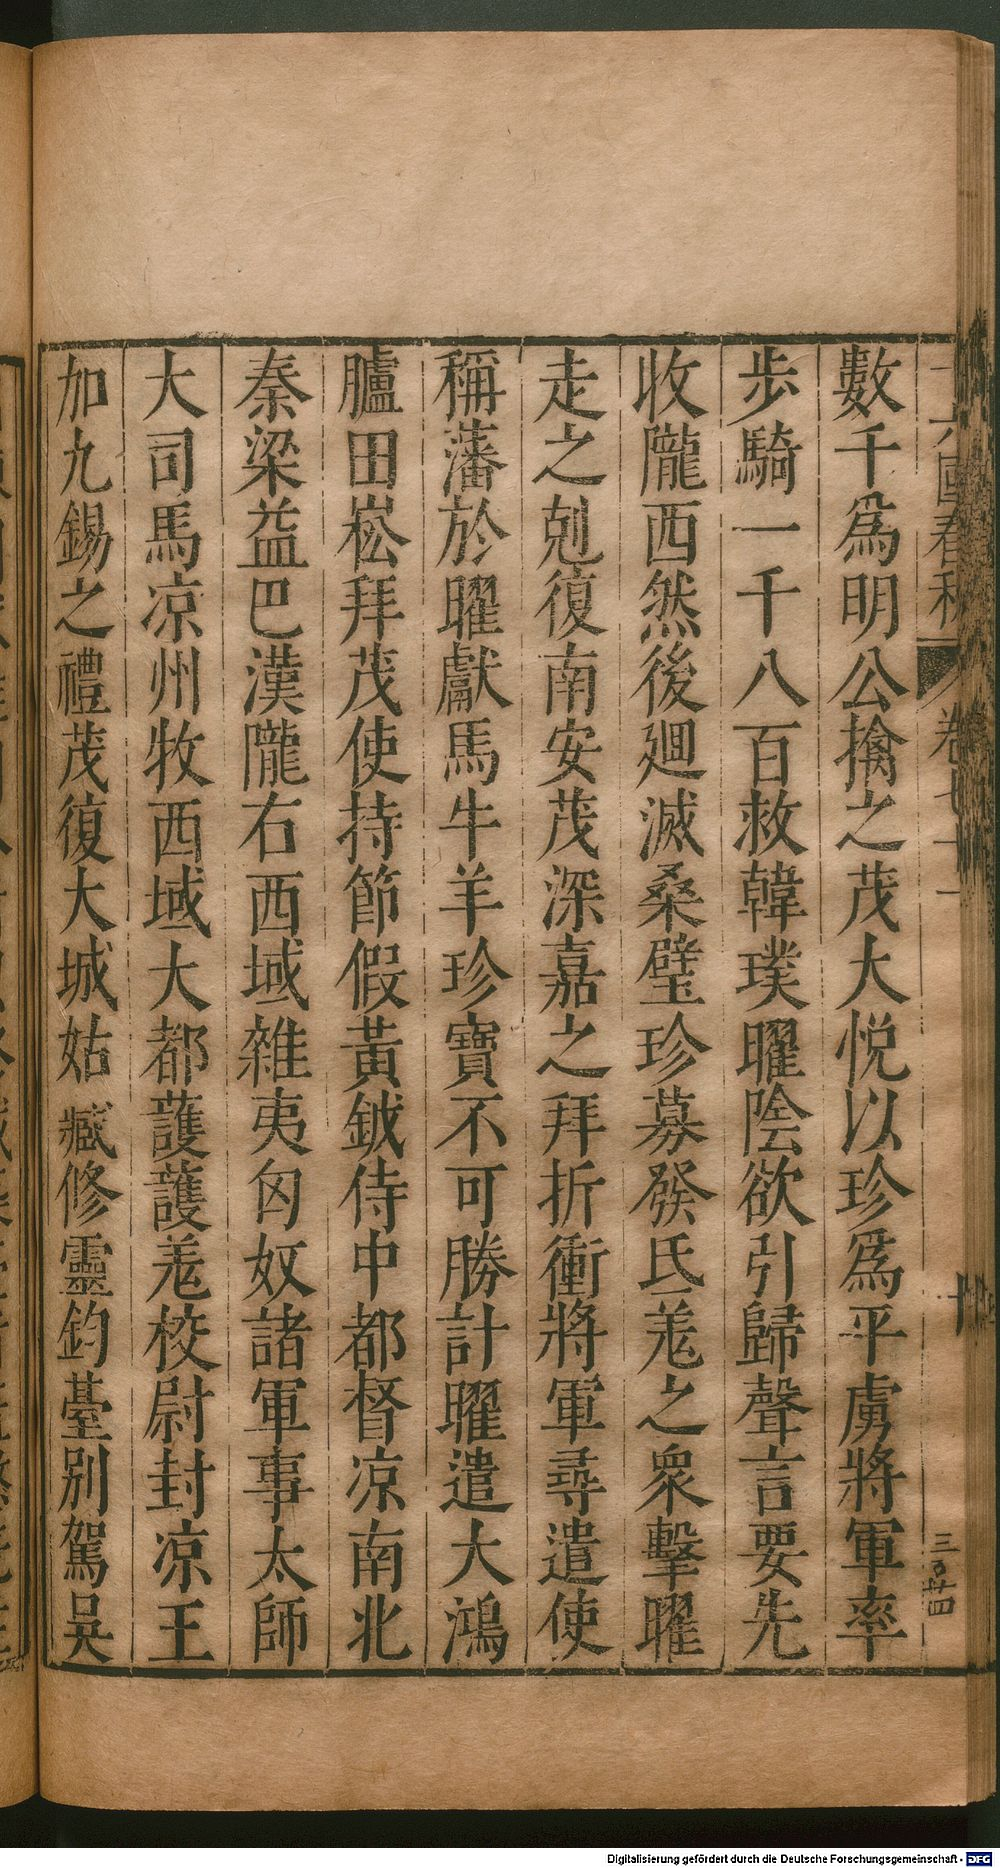 十六國春秋 卷七十一 十 三百廿四
數千爲明公擒之茂大悅以珍爲平虜將軍率
步騎一千八百救韓璞曜陰欲引歸聲言要先
收隴西然後廻滅桑壁珍募發氐羌之衆擊曜
走之剋復南安茂深嘉之拜折衝將軍尋遣使
稱藩於曜獻馬牛羊珍寶不可勝計曜遣大鴻
臚田崧拜茂使持節假黃鉞侍中都督凉南北
秦梁益巴漢隴右西域雜夷匈奴諸軍事太師
大司馬凉州牧西域大都護護羌校尉封凉王
加九錫之禮茂復大城姑臧修靈鈞臺別駕吳
Digitalisierung gefördert durch die Deutsche Forschungsgemeinschaft - DFG